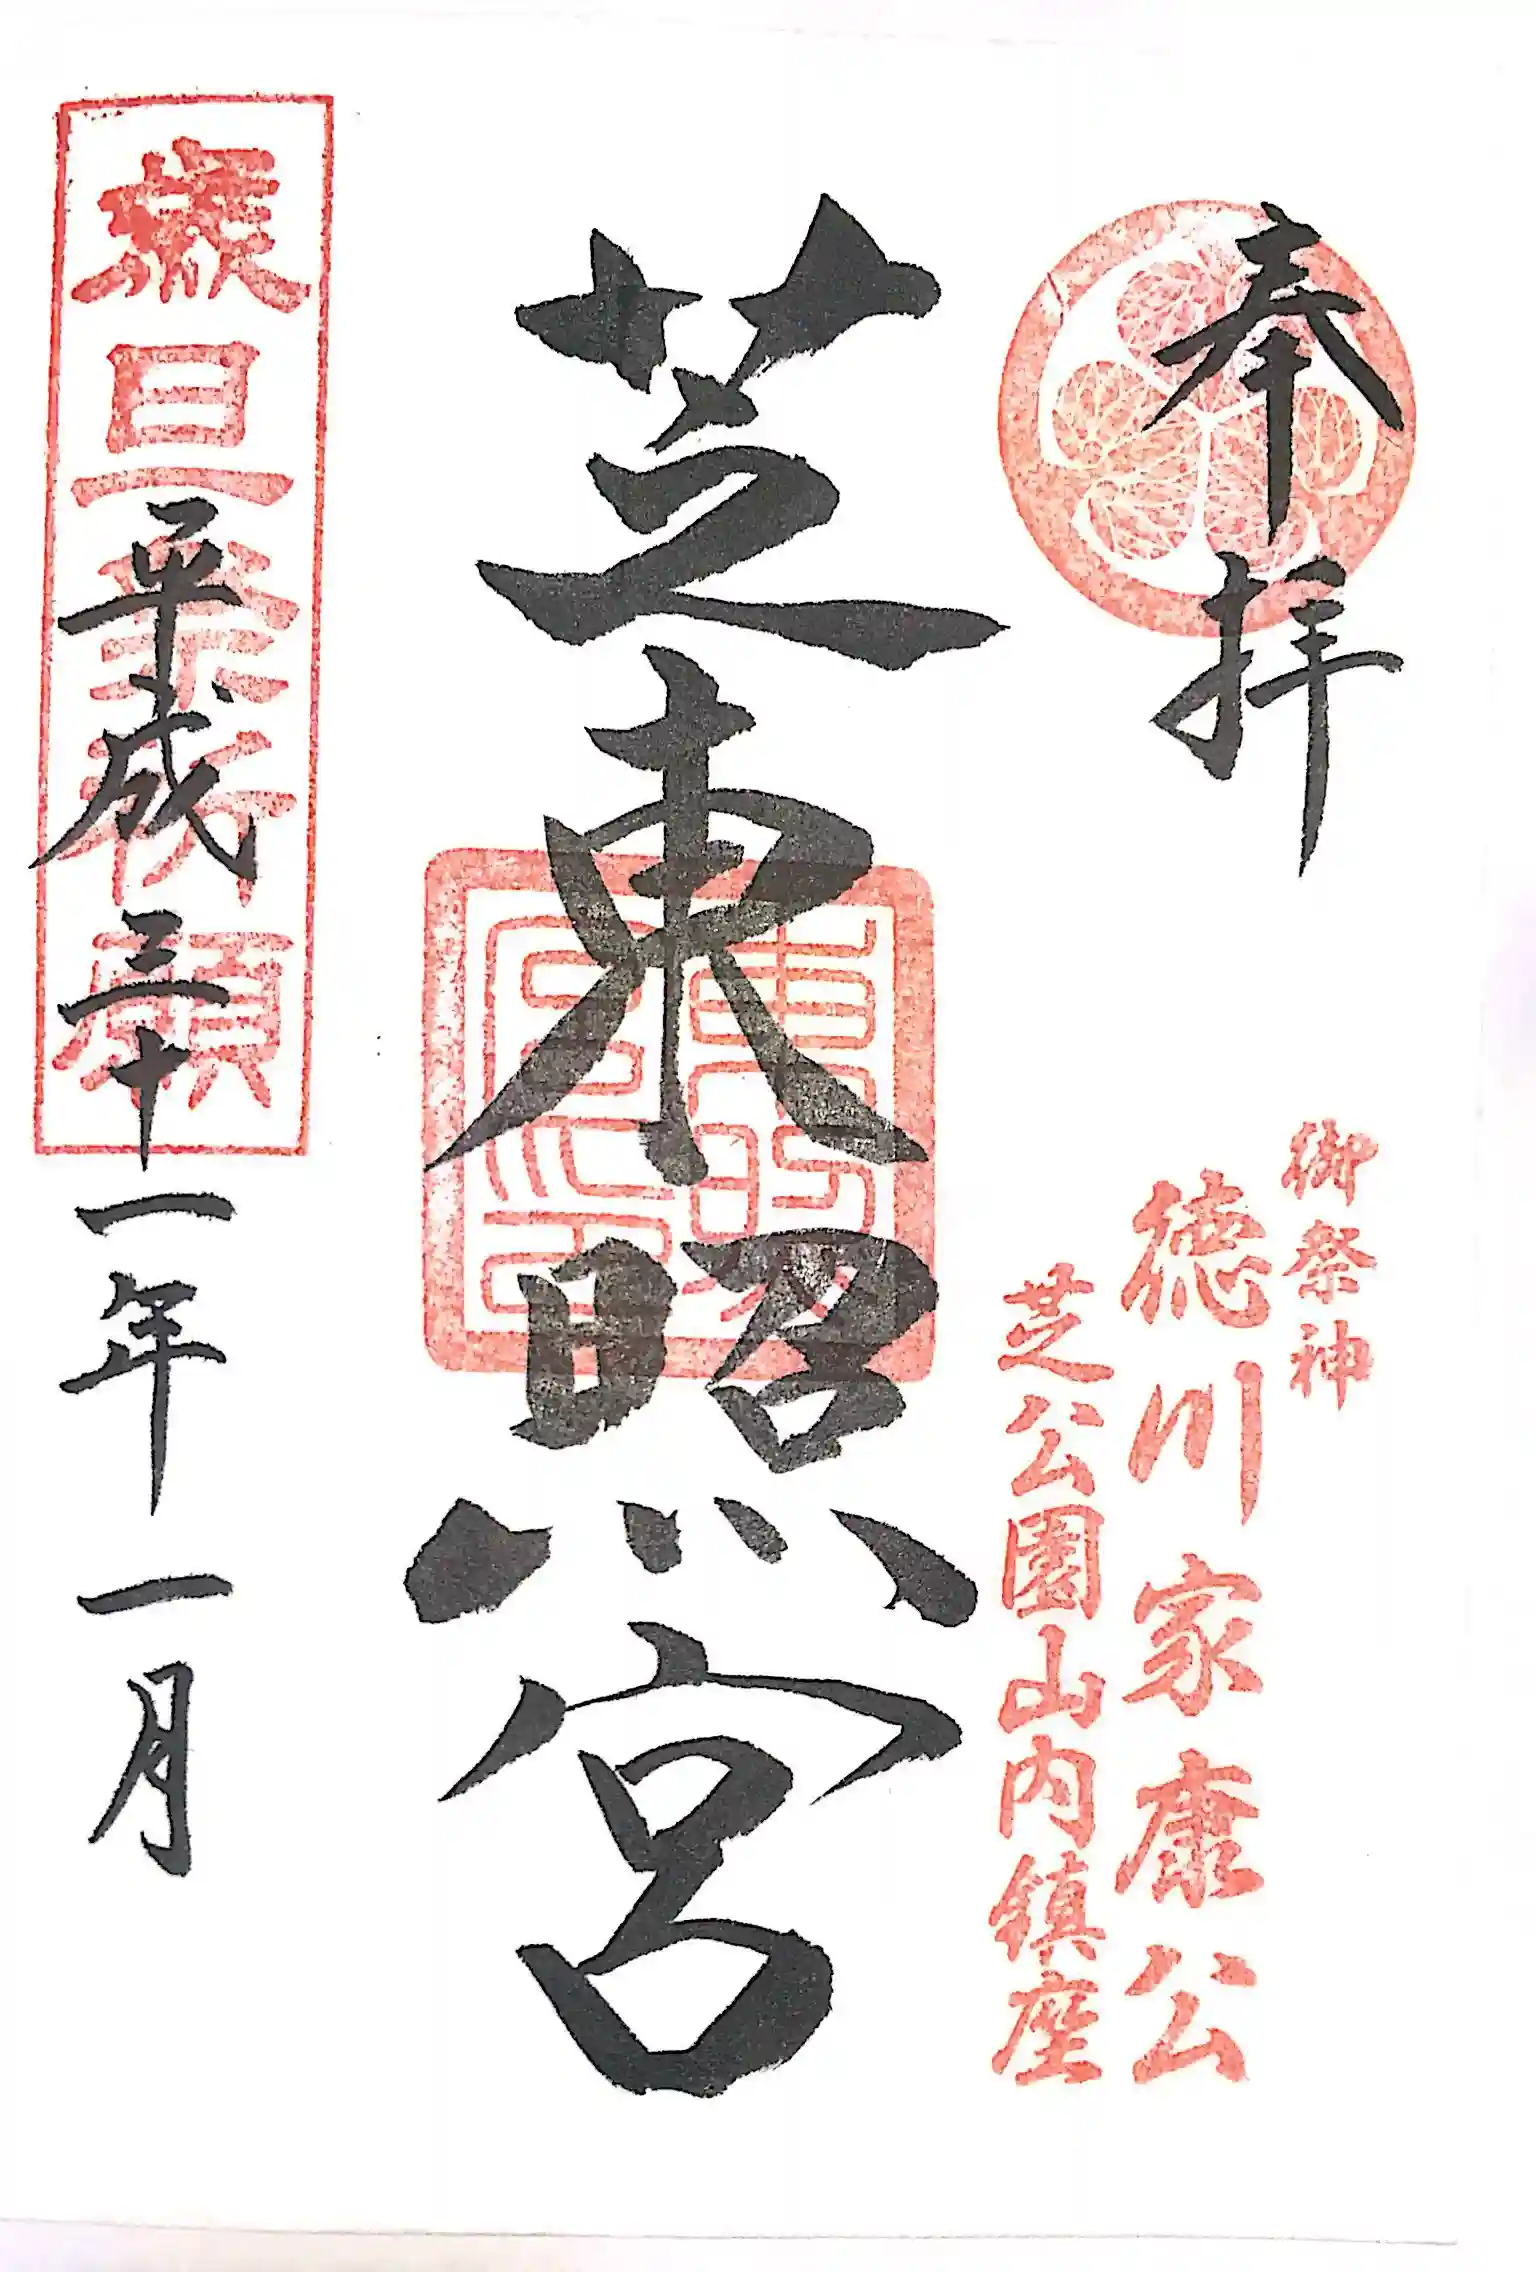 奉拝
御祭神
徳川家康公
芝公園山内鎮座
芝東照宮
歳旦祭祈願
平成三十一年一月